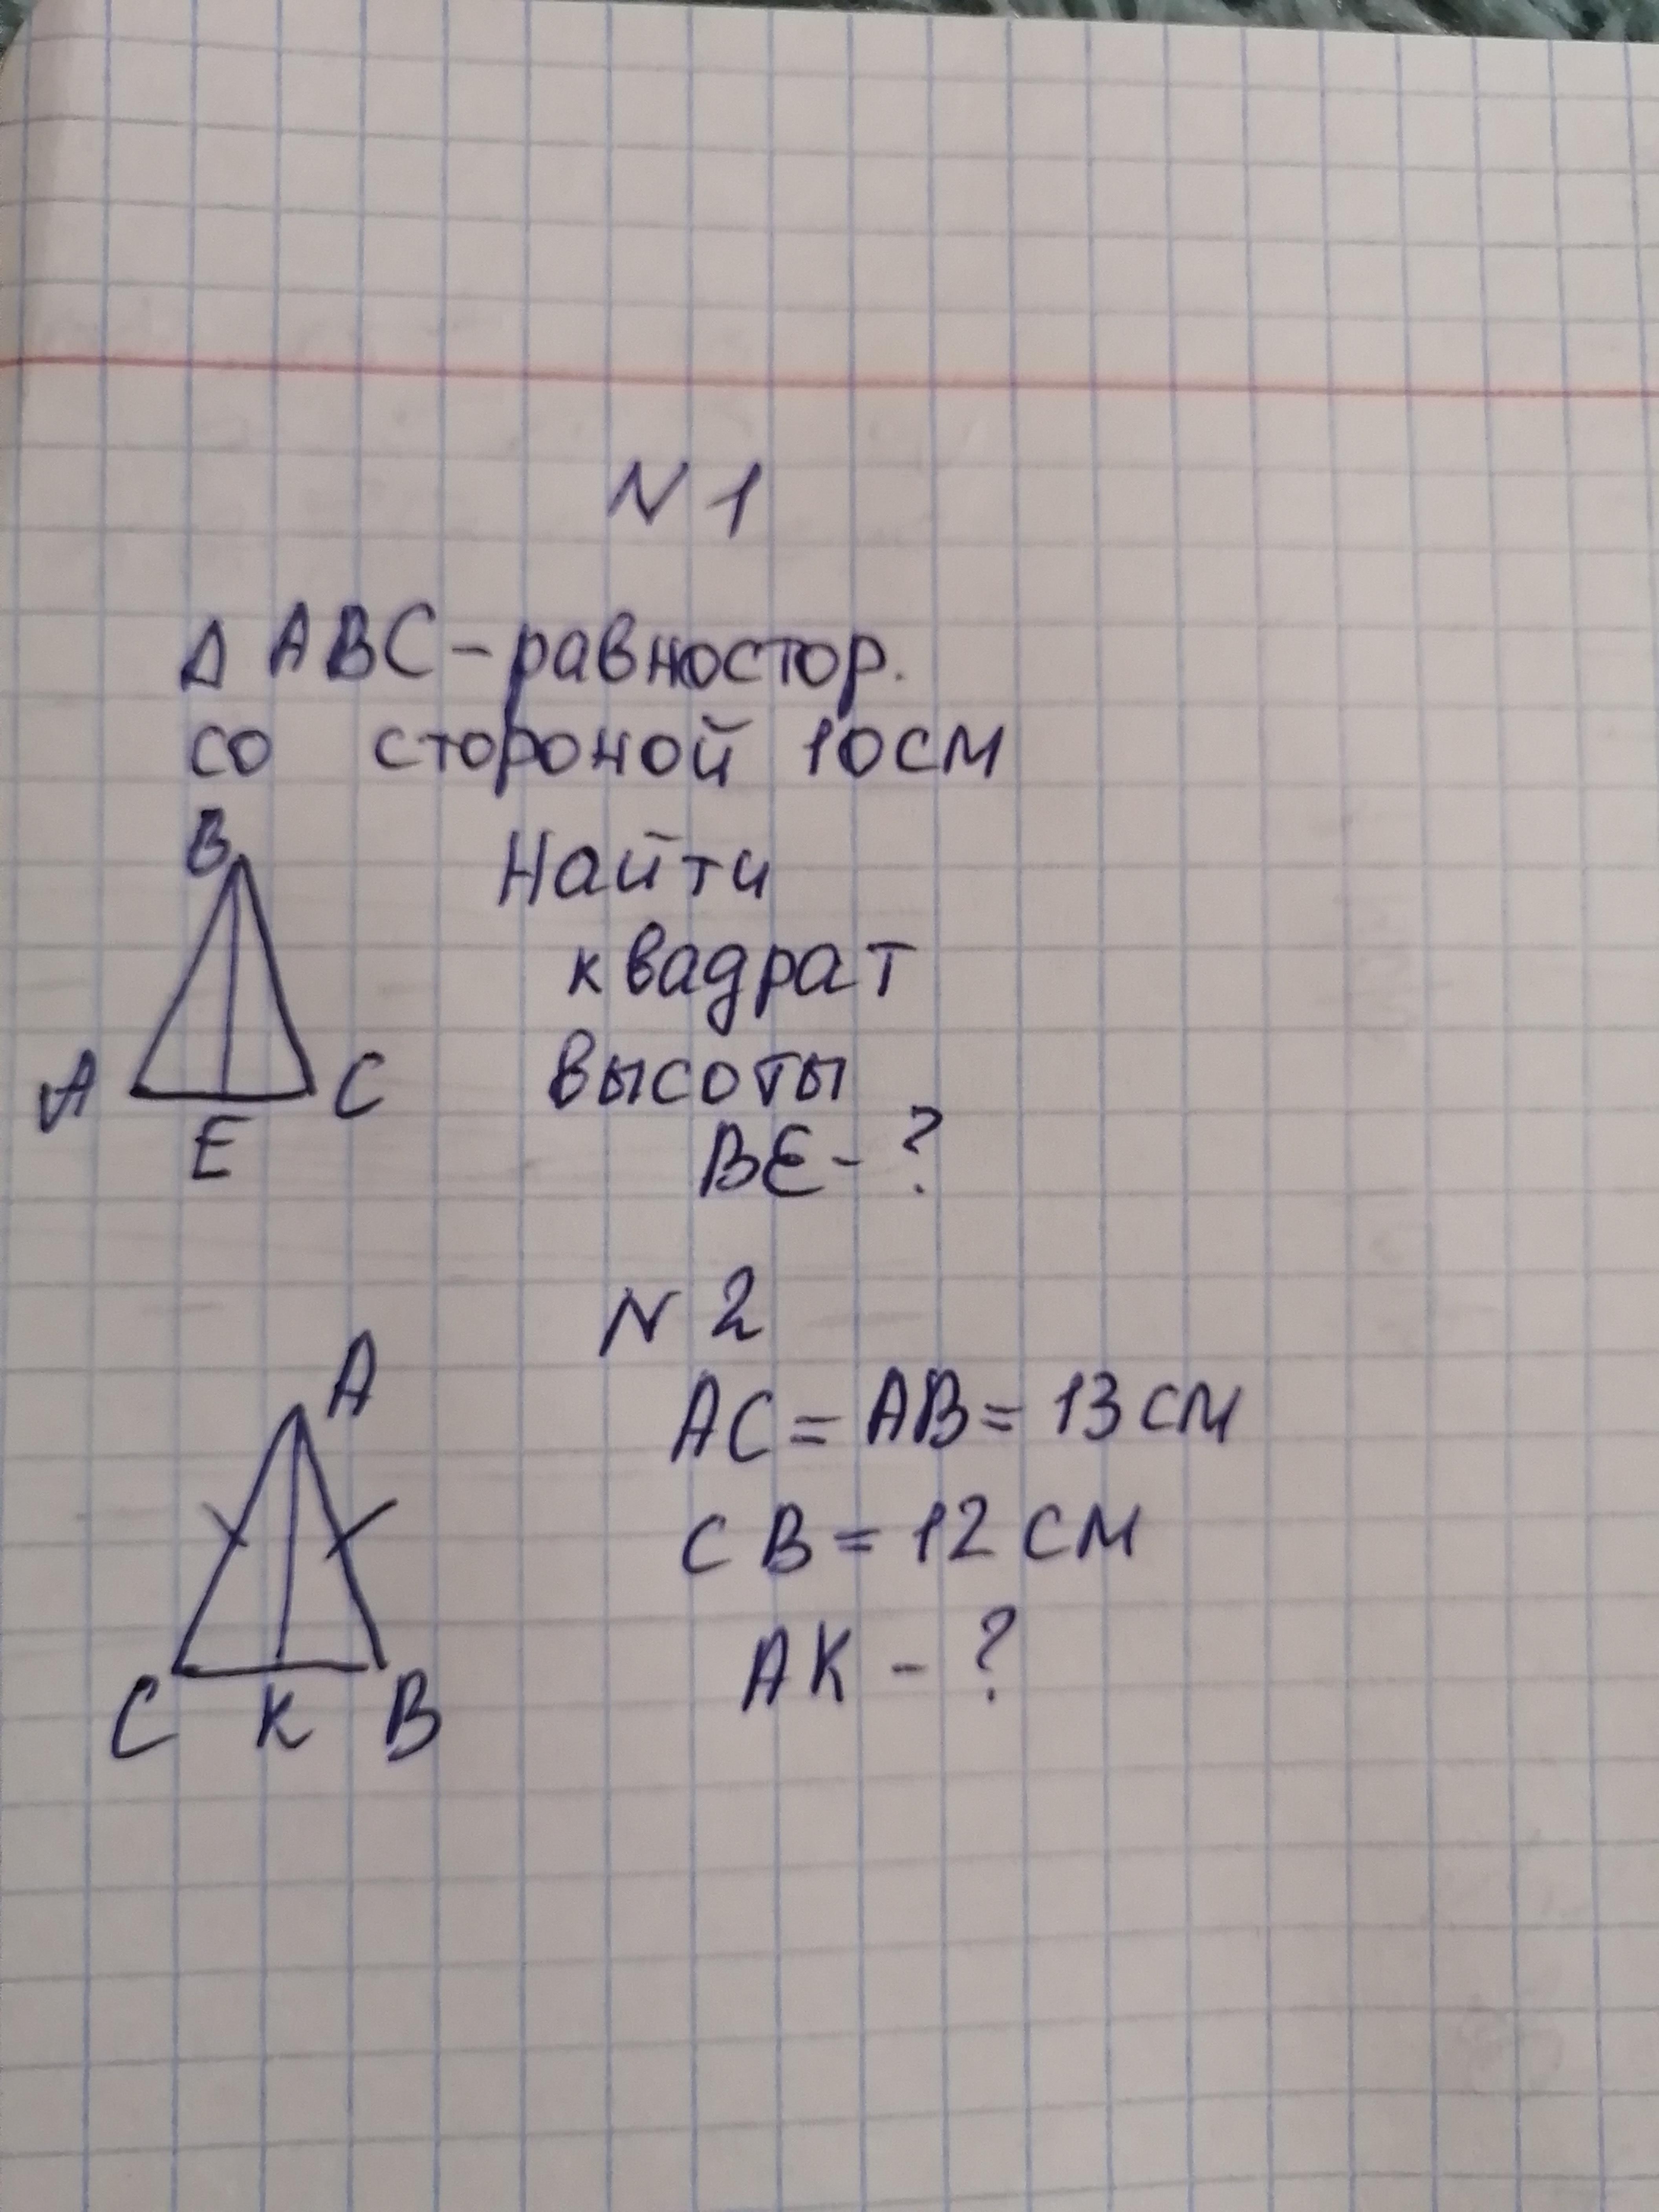 N 1
Δ ABC - равностор.
со стороной 10см
B
Найти
квадрат
высоты
A
C
E
BE - ?
N 2
A
AC = AB = 13 см
CB = 12 см
AK - ?
C K B